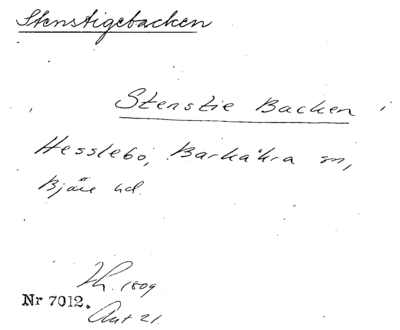 Stenstigebacken
Stenstie Backen i
Hesslebo, Barkåkra sn,
Bjäre hd.
Lh. 1809
Nr 7012.
Akt 21.